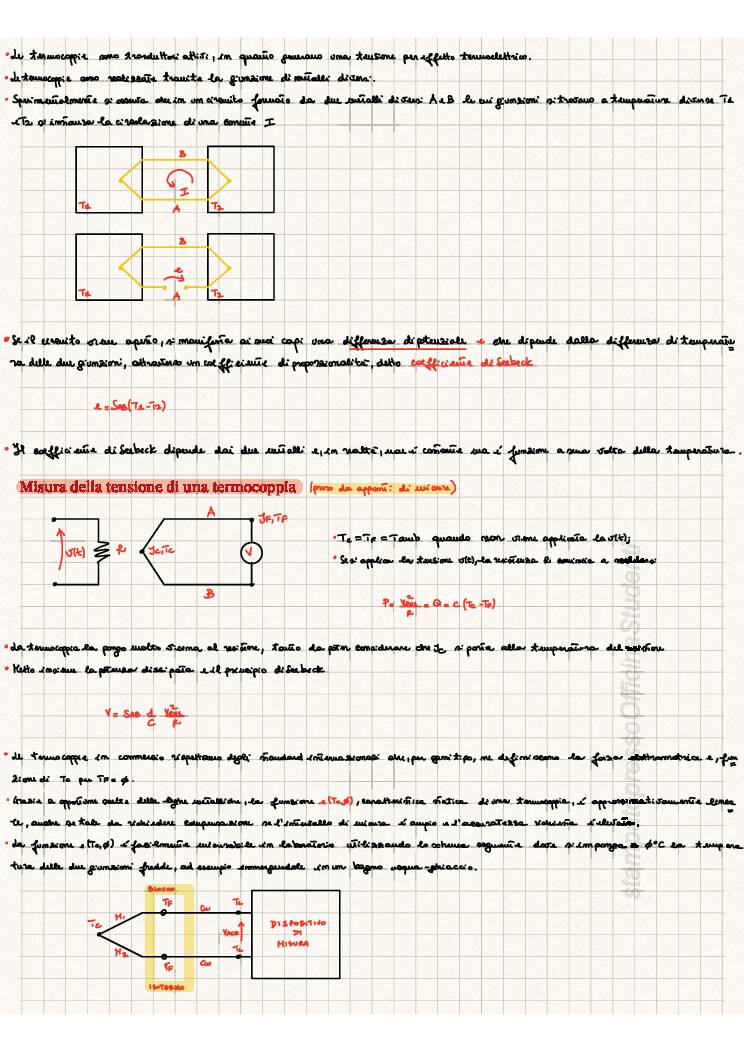 • Le termocoppie sono trasduttori attivi, in quanto generano una tensione per effetto termoelettrico.
• Le termocoppie sono realizzate tramite la giunzione di metalli diversi.
• Sperimentalmente si osserva che in un circuito formato da due metalli diversi A e B le cui giunzioni si trovano a temperature diverse T1
e T2 si instaura la circolazione di una corrente I
B
I
T1 A T2
B
e
T1 A T2
• Se il circuito viene aperto, si manifesta ai suoi capi una differenza di potenziale e che dipende dalla differenza di temperatu
ra delle due giunzioni, attraverso un coefficiente di proporzionalità, detto coefficiente di Seebeck
e = SAB(T1-T2)
• Il coefficiente di Seebeck dipende dai due metalli e, in realtà, non è costante ma è funzione a sua volta della temperatura.
Misura della tensione di una termocoppia (preso da appunti di misure)
A JF, TF
v(t) R JC, TC V
B
• TC = TF = Tamb quando non viene applicata la v(t);
• Se si applica la tensione v(t), la resistenza R comincia a scaldarsi
P = V²RMS/R = Q = C (TC - TF)
• La termocoppia la pongo molto vicina al resistore, tanto da poter considerare che JC si porta alla temperatura del resistore
• Metto insieme la potenza dissipata e il principio di Seebeck
V = SAB 1/C V²RMS/R
• Le termocoppie in commercio rispettano degli standard internazionali che, per ogni tipo, ne definiscono la forza elettromotrice e, fun
zione di TC per TF = ø.
• Grazie a opportune scelte delle leghe metalliche, la funzione e(TC,ø), caratteristica statica di una termocoppia, è approssimativamente linea
re, anche se tale da richiedere compensazione se l'intervallo di misura è ampio e l'accuratezza richiesta è elevata.
• La funzione e(TC,ø) è facilmente misurabile in laboratorio utilizzando lo schema seguente dove si impongo a ø°C la tempera
tura delle due giunzioni fredde, ad esempio immergendole in un bagno acqua-ghiaccio.
BLOCCO
TF Cu TL
TC M1
VMIS
DISPOSITIVO
DI
MISURA
M2 TL
TF Cu
ISOTERMO
stampato presso Officina Studenti